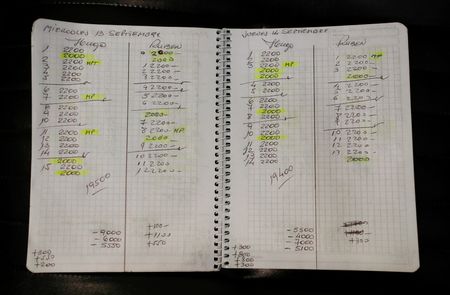 MIERCOLES 13 SEPTIEMBRE
Hugo
1 2200
2000
2 2200 MP
2200
2200
6 2200
7 2200 MP
8 2200
9 2000
10 2200
11 2200 MP
12 2000
13 2200
14 2200
2000
15 2200
2000
19500
-9000
-6000
-5550
+200
Ruben
2000
1 2200
2200
3 2200
4 2200
5 2200
6 2200
2000
7 2200
8 2200 MP
2000
9 2200
10 2200
11 2200
12 2200
+1100
+550
JUEVES 14 SEPTIEMBRE
Hugo
1 2200
2 2200
3 2200 MP
2000
2000
4 2200
5 2200
6 2200
7 2200
2000
8 2200
9 2200
10 2000
11 2200
12 2200
13 2200
14 2200
19400
-5500
-4000
-7000
-5100
+300
+300
Ruben
1 2200 MP
2 2200
3 2200
2000
4 2200
5 2200
6 2200
7 2200
8 2200
9 2200
10 2200
11 2200
12 2200
13 2200
2000